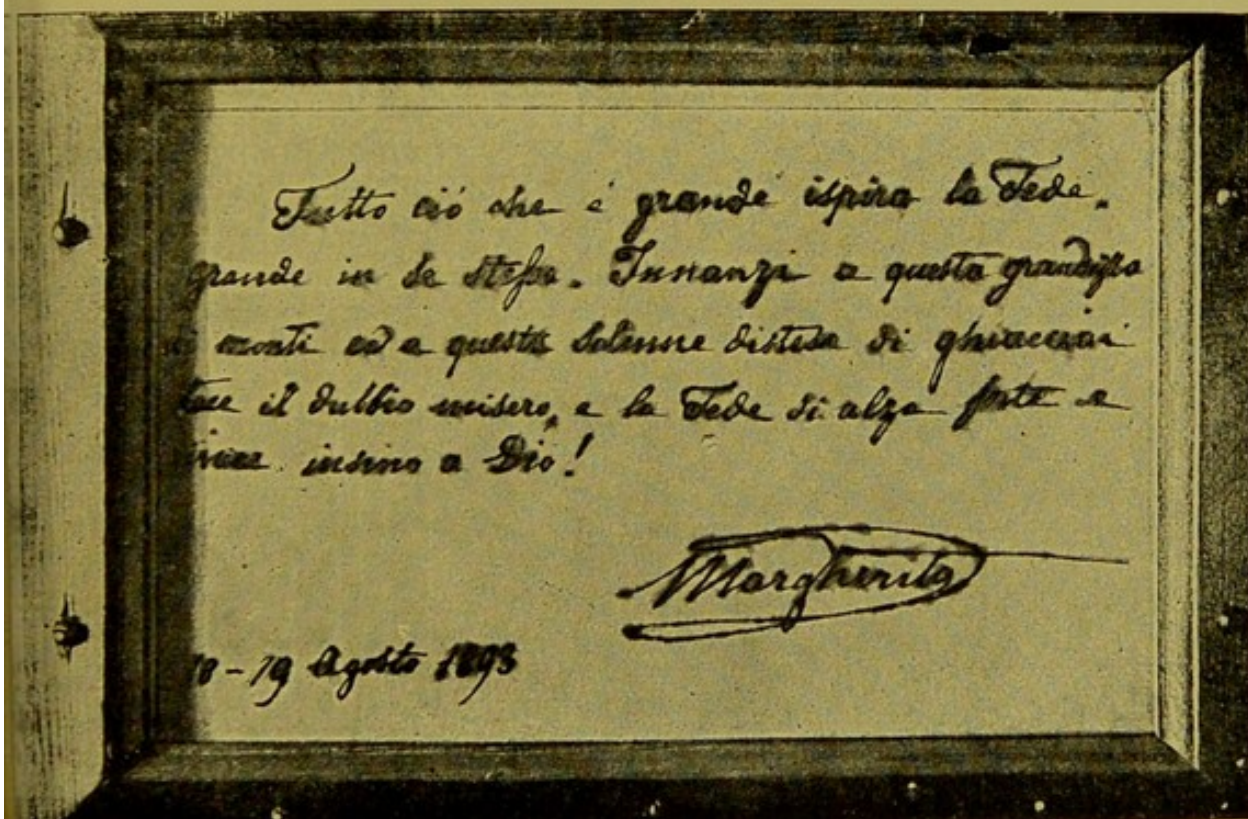 Tutto ciò che è grande ispira la Fede,
grande in se stessa. Innanzi a questa
monti ed a questa solenne distesa di ghiacciai
tace il dubbio misero, e la Fede si alza forte e
insino a Dio!
Margherita
18-19 Agosto 1893